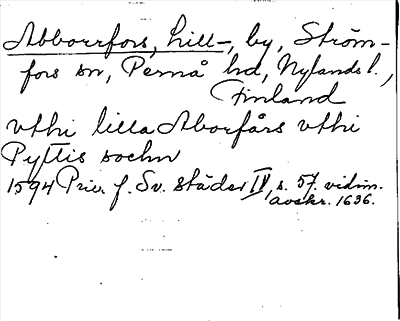 Abborrfors, Lill-, by, Ström-
fors sn, Pernå hd, Nylands l.,
Finland
vthi lilla Aborfårs vthi
Pyttis sochn
1594 Priv. f. Sv. städer IV, s. 57. vidim.
avskr. 1636.